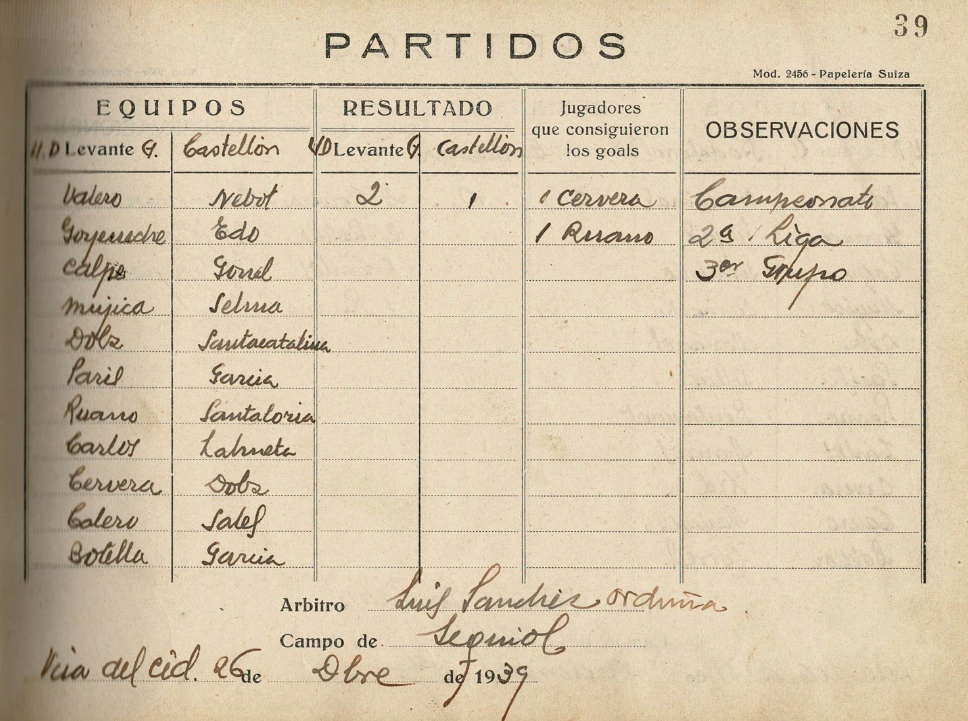 39
PARTIDOS
Mod. 2456 - Papelería Suiza
EQUIPOS RESULTADO Jugadores que consiguieron los goals OBSERVACIONES
U.D Levante G. Castellón UD Levante G. Castellón
Valero Nebot 2 1 1 Cervera Campeonato
Goyeneche Edo 1 Ruano 2ª Liga
Calpe 3er Grupo
Mujica Selma
Dolz Santacatalina
Paril Garcia
Ruano Santaloria
Carlos Lahuerta
Cervera Dolz
Calero
Botella Garcia
Arbitro Luis Sanchis orduña.
Campo de Sequiol
del Cid. 26 de Dbre de 1939